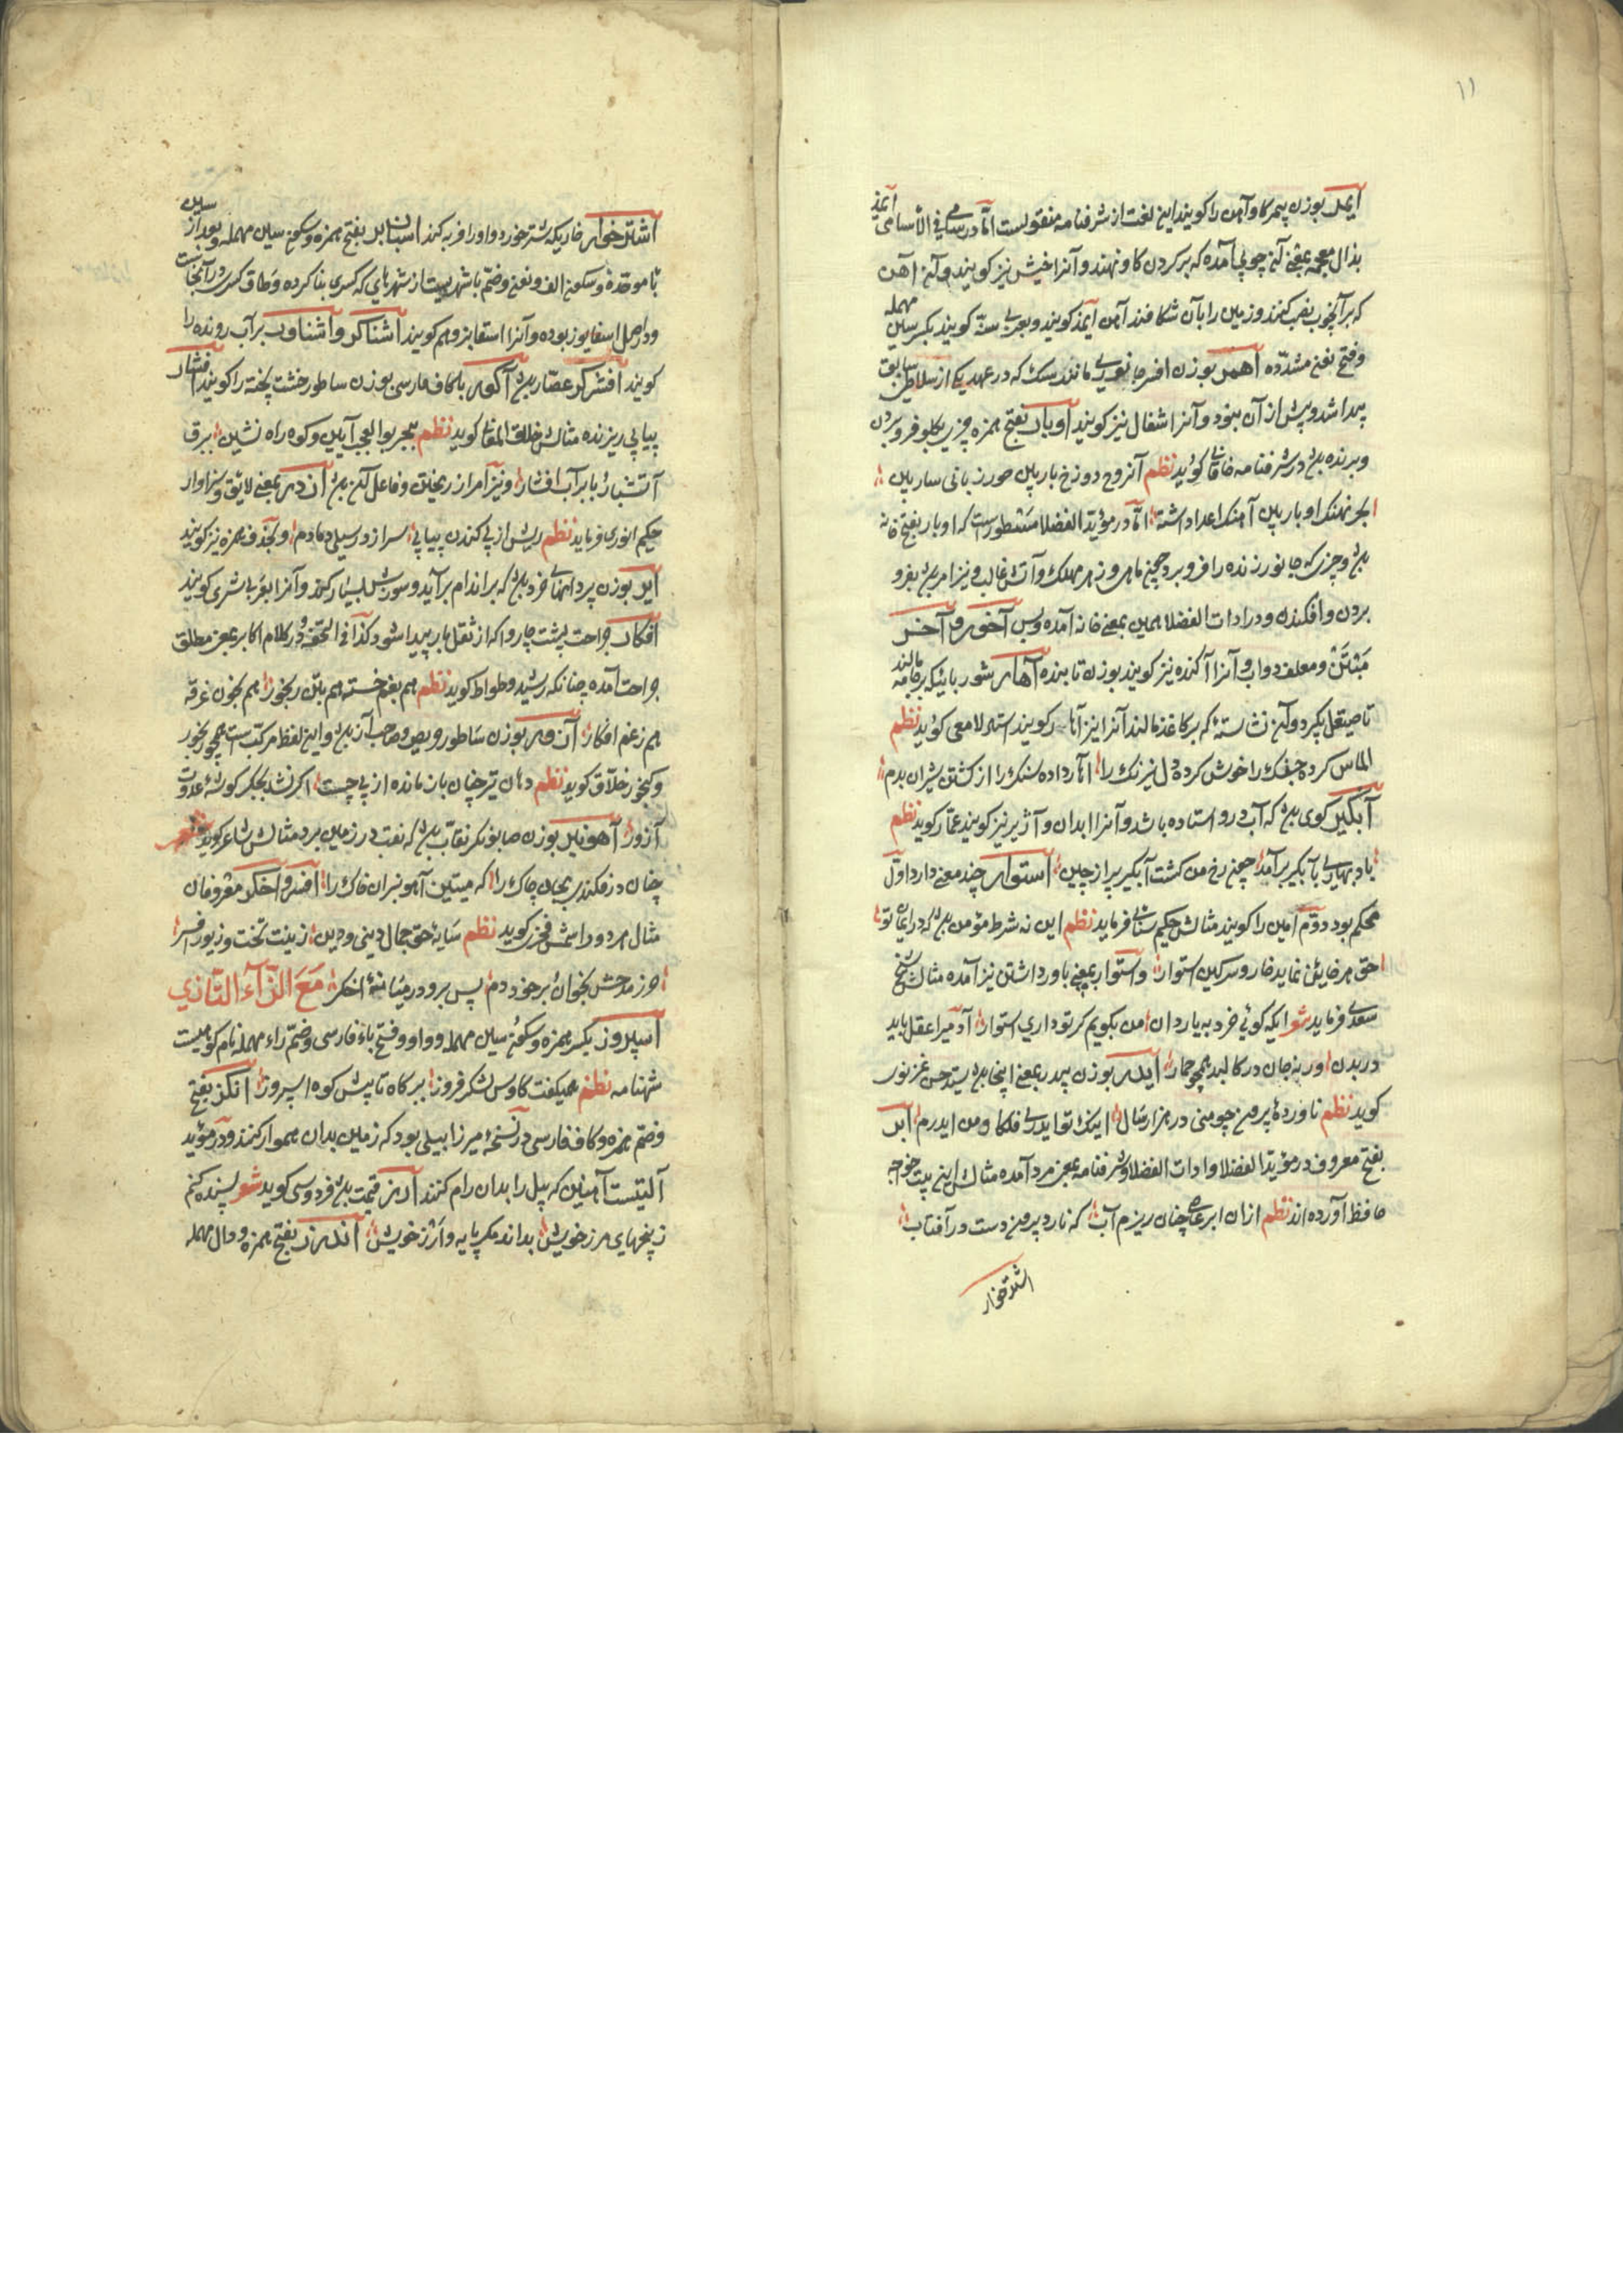 ۱۱
ایمر بوزن پیمر کاو آهن را کویند این لغت از شرفنامه منقولست اما در سامی فی الاسامی ایمذ
بذال معجمه بمعنی آن چوبی آمده که بر کردن کاو نهند و آنرا خیش نیز کویند و آن آهن
که بر آنچوب نصب کنند و زمین را بآن شکافند آهن ایمذ کویند و بعربی سنه کویند بکسر سین مهمله
وفتح نون مشدده آهمر بوزن افسر جانوریست مانند سک که در عهد یکی از سلاطین سابق
پیدا شد و پیش از آن نبود و آنرا اشغال نیز کویند اوبار بفتح همزه چیزی بکلو فرو بردن
و برنده بود در شرفنامه خاقانی کوید نظم آن روح دوزخ بار بین حور زبانی سار بین
بحر نهنک اوبار بین آهنک اعدا داشته اما در مؤید الفضلا مسطورست که اوبار بفتح خانه
بود و چیزی که جانور زنده را فرو برد همچون ماهی و زهر مهلک و آتش غالب و نیز امر بود بفرو
بردن و افکندن و در ادات الفضلا همین بمعنی خانه آمده و بس آخور و آخر
و معلف دواب و آنرا آکنده نیز کویند بوزن تابنده آهار شوربائیکه بر جامه مالند
تا صیقل پکیرد و آن نشاسته که بر کاغذ مالند آنرا نیز آهار کویند استاد لامعی کوید نظم
الماس کرده جفک را خوش کرده دل نیرنک را آهار داده سنک را از کشتن شیران بدم
آبکیر کوی بود که آب درو استاده باشد و آنرا ابدان و آژیر نیز کویند عمار کوید نظم
باد بهاری بآبکیر برآمد چون رخ من کشت آبکیر پر از چین استوار چند معنی دارد اول
محکم بود دوم امین را کویند مثالش حکیم سنائی فرماید نظم این نه شرط مؤمن بود که در ایمان تو
حق همه خاین نماید خار و سرکین استوار و استوار بمعنی باور داشتن نیز آمده مثالش شیخ
سعدی فرماید شعر ایکه کوئی خر به یاردان من بکویم کر تو داری استوار آدمیرا عقل باید
در بدن ورنه جان در کالبد همچو حمار ایدر بوزن پیدر بمعنی اینجا بود سید حسن غزنوی
کوید نظم ناورده پرون چو منی در هزار سال اینک تو ایدری فلکا و من ایدرم ابر
بفتح معروف در مؤید الفضلا و ادات الفضلا و شرفنامه بمعنی مرد آمده مثالش این بیت خواجه
حافظ آورده اند نظم ازان ابر عاصی چنان ریزم آب که نارد پرون دست در آفتاب
اشترخوار
اشترخوار خاریکه شتر خورد و او را فربه کند اسبانبر بفتح همزه و سکون سین مهمله و بعد از سین
با موحده و سکون الف و نون و ضم با شهریست از شهرهای که کسری بنا کرده و طاق کسری در آنجاست
و در اصل اسفابور بوده و آنرا استفابر هم کویند اشناکر و اشناور بر آب رونده را
کویند افشرکر عصار بود آکور با کاف فارسی بوزن ساطور خشت پخته را کویند افشار
پیاپی ریزنده مثالش خلاق المعانی کوید نظم ببحر بوالعجب آیین و کوه راه نشین ببرق
آتشبار بابر آب افشار و نیز امر از ریختن و فاعل آن بود اندر بمعنی لایق و سزاوار
حکیم انوری فرماید نظم ریش از پی کندن پیاپی سر از در سیلی دمادم و بحذف همزه نیز کویند
ایر بوزن پر دانهای خرد بود که بر اندام برآید و سوزش بسیار کند و آنرا بعربی شری کویند
افکار جراحت پشت چاروا که از ثقل بار پیدا شود کذا فی التحفه و در کلام اکابر بمعنی مطلق
جراحت آمده چنانکه رشید وطواط کوید نظم هم بغم خسته هم بتن رنجور هم بخون غرقه
هم زغم افکار آزور بوزن ساطور حریص و صاحب آز بود و این لفظ مرکبست همچو رنجور
و کنجور خلاق کوید نظم دهان تیر چنان باز مانده از پی چیست اکر نشد بجکر کوشه عدوت
آزور آهونبر بوزن صابونکر نقاب بود که نقب در زمین برد مثالش شاعر کوید شعر
چنان در فکند بریحان چاک را که میتین آهونبران خاک را افسر و اخکر معروفان
مثال هر دو را شمس فخری کوید نظم سایه حق جمال دینی و دین زینت تخت و زیور افسر
حرز مدحش بخوان بر خود دم پس برو در میانه اخکر مع الزآء التازی
اسپروز بکسر همزه و سکون سین مهمله و واو و فتح باء فارسی و ضم راء مهمله نام کوهیست
شهنامه نظم همیکفت کاوس لشکر فروز ببر کاه تا پیش کوه اسپروز انکز بفتح
و ضم همزه و کاف فارسی در نسخه میرزا بیلی بود که زمین بدان هموار کنند و در مؤید
آلتیست آهنین که پیل را بدان رام کنند ارز قیمت بود فردوسی کوید شعر پسنده کنم
زین پهنای مرز خویش بداند مکر پایه و ارز خویش اندرز بفتح همزه و دال مهمله